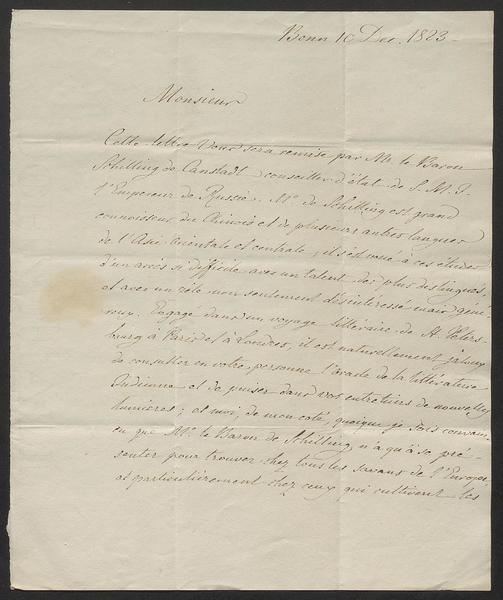 Bonn 10 Dec. 1823
Monsieur
Cette lettre Vous sera remise par Mr. le Baron
Schilling de Canstadt, conseiller d'état de S. M. I.
l'Empereur de Russie. Mr. de Schilling est grand
connoisseur du Chinois et de plusieurs autres langues
de l'Asie Orientale et centrale, il s'est voué à ces études
d'un accès si difficile avec un talent des plus distingués,
et avec un zèle non seulement désintéressé mais géné-
reux. Engagé dans un voyage littéraire de St. Peters-
bourg à Paris et à Londres, il est naturellement jaloux
de consulter en votre personne l'oracle de la littérature
Indienne et de puiser dans vos entretiens de nouvelles
lumières; et moi, de mon coté, quoique je sois convain-
cu que Mr. le Baron de Schilling n'a qu'à se pré-
senter pour trouver chez tous les savans de l'Europe,
et particulièrement chez ceux qui cultivent les